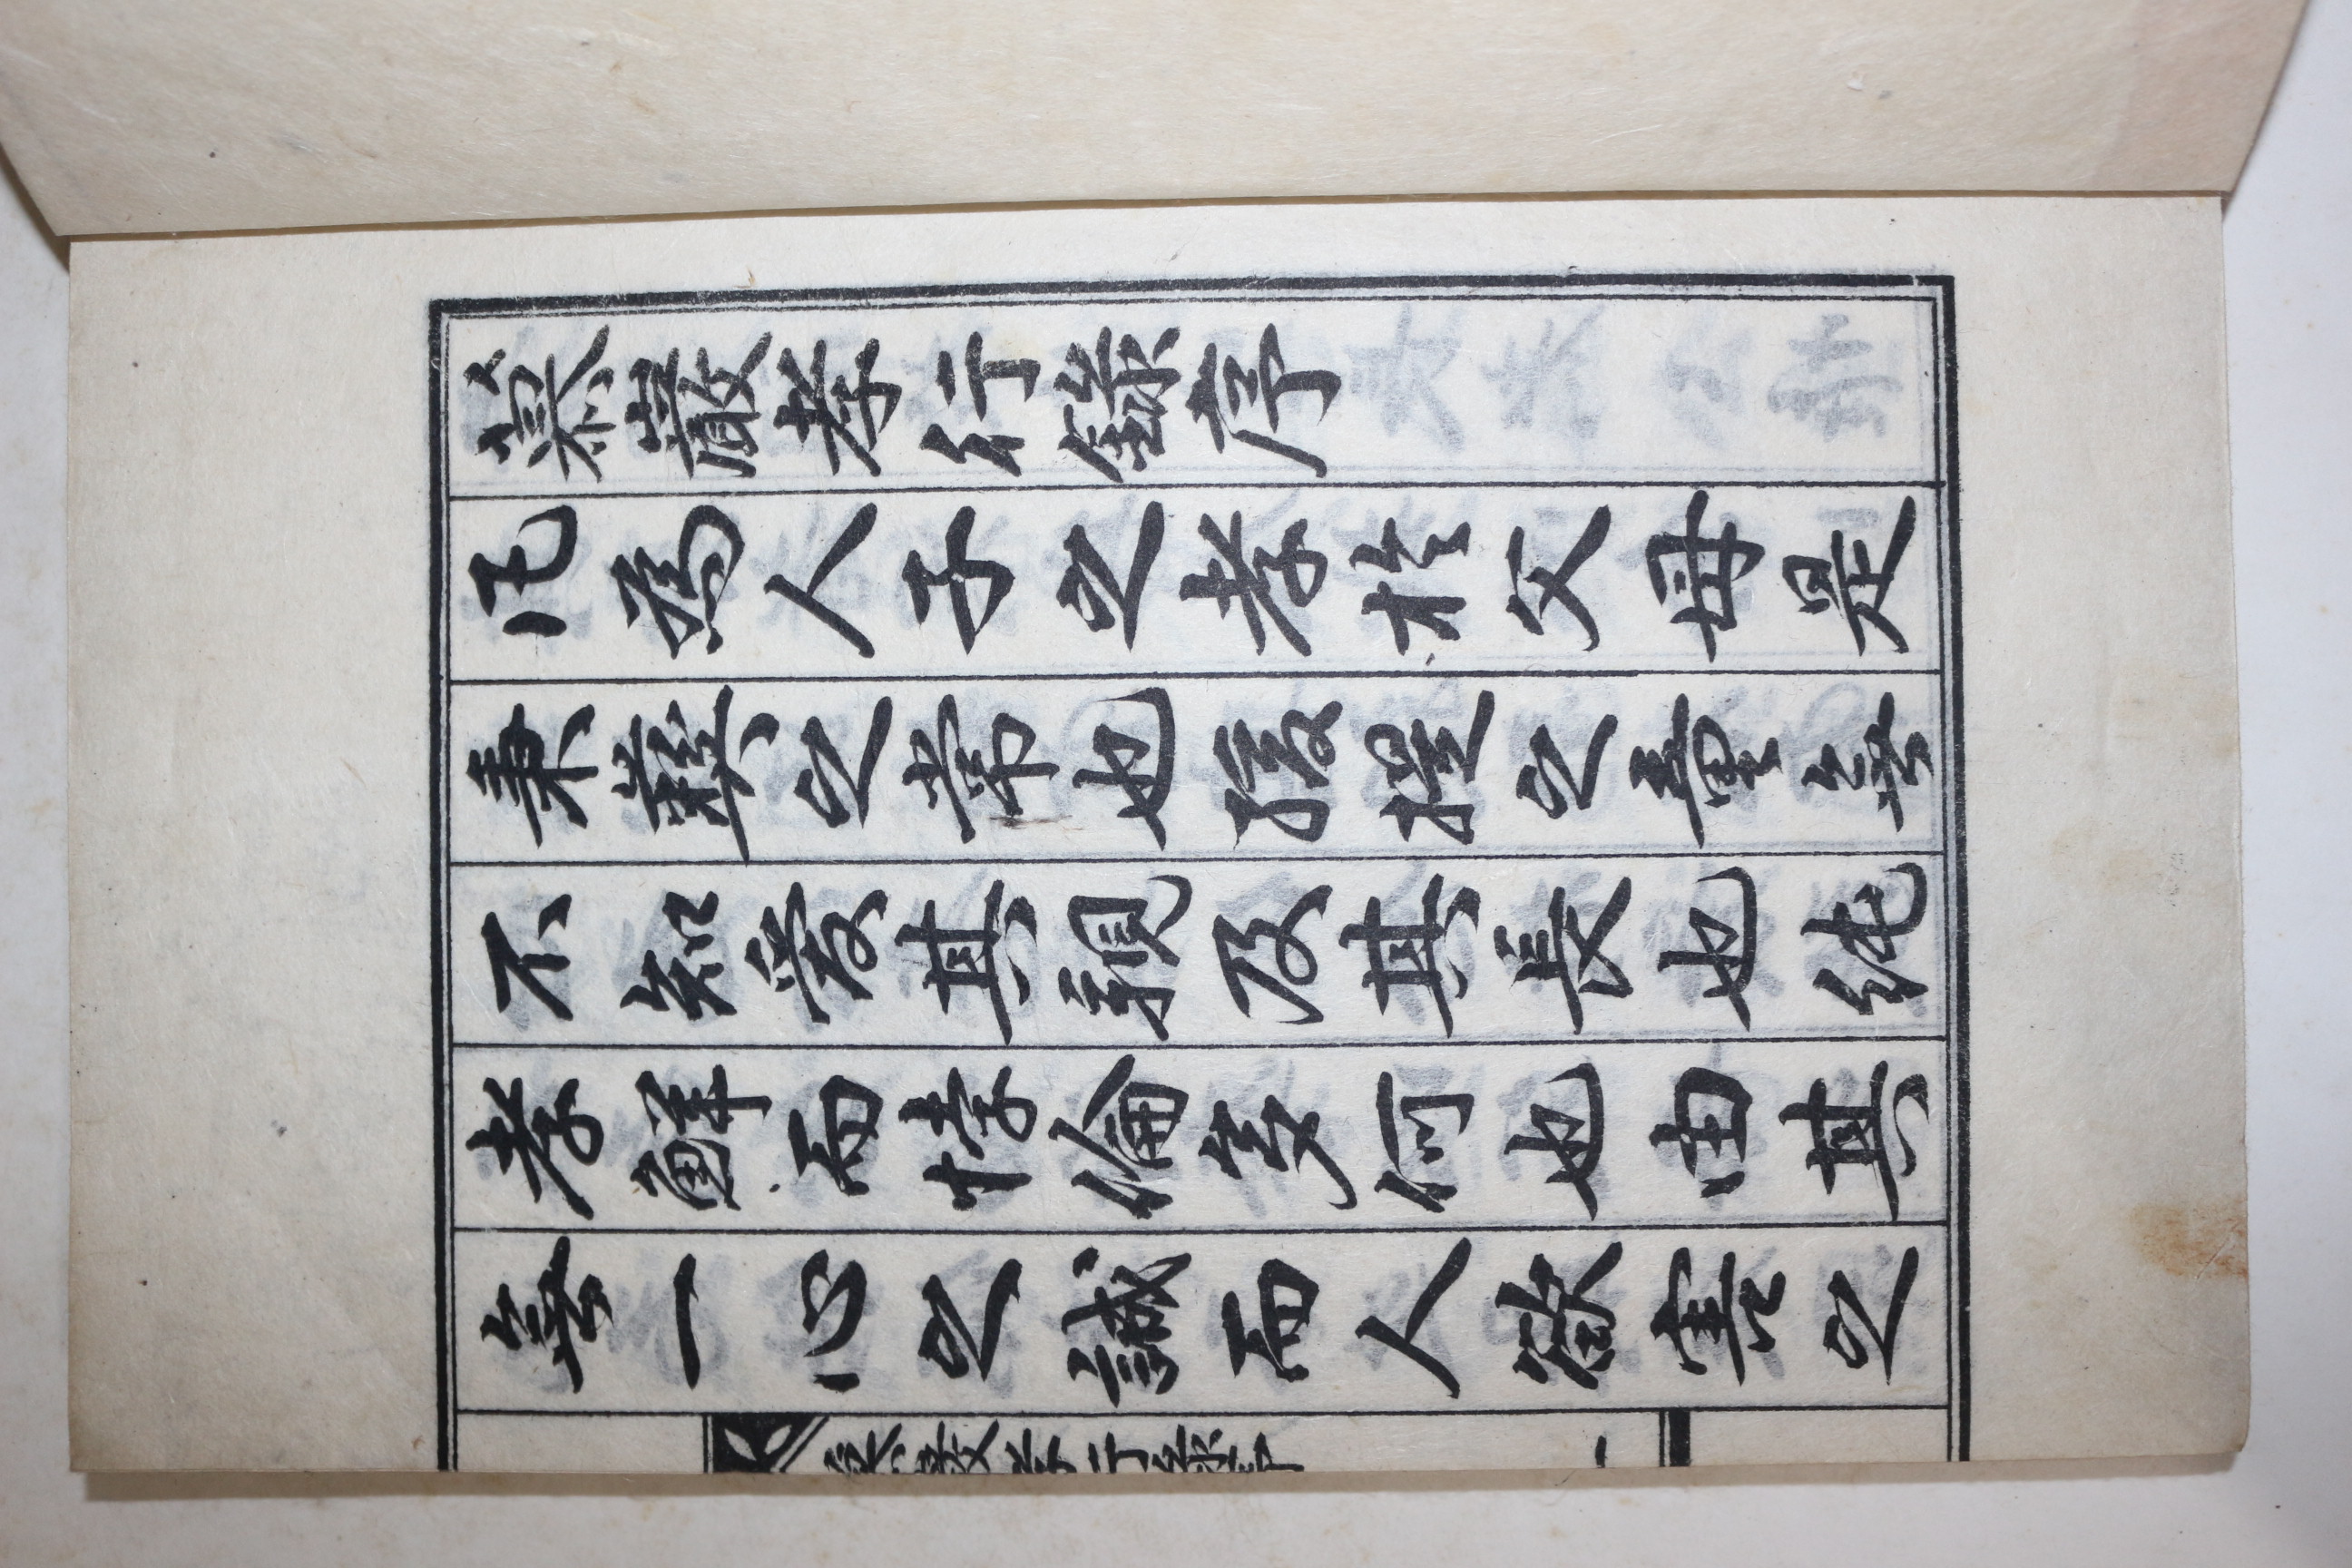 慕巖孝行錄序
凡為人子之孝於父母是
秉彜之常也孩提之童無
不知愛其親及其長也純
孝鮮而悖倫多何也由其
無一心之誠而人欲害之
慕巖孝行錄序
一